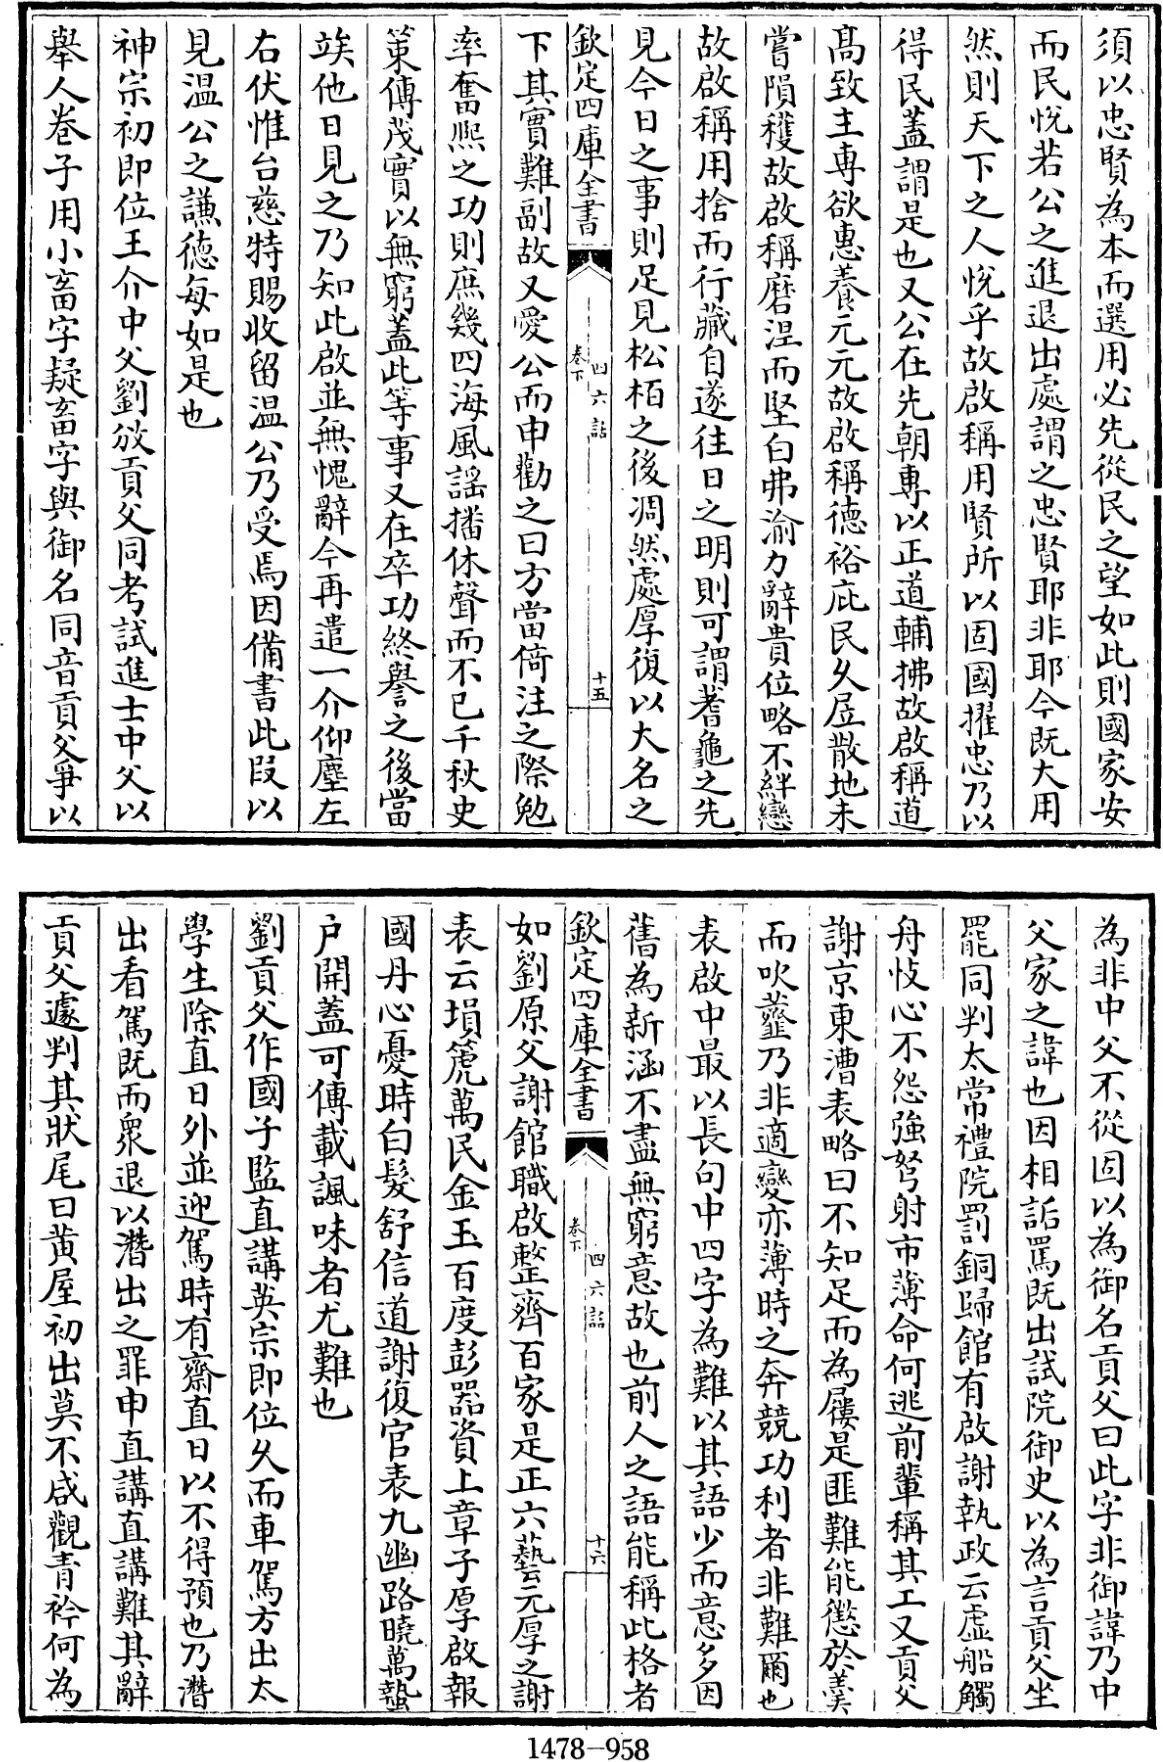 須以忠賢為本而選用必先從民之望如此則國家安
而民悅若公之進退出處謂之忠賢耶非耶今既大用
然則天下之人悅乎故啟稱用賢所以固國擢忠乃以
得民蓋謂是也又公在先朝專以正道輔拂故啟稱道
高致主專欲惠養元元故啟稱德裕庇民乆㞐散地未
嘗隕穫故啟稱磨涅而堅白弗渝力辭貴位略不絆戀
故啟稱用捨而行藏自遂往日之明則可謂蓍龜之先
見今日之事則足見松栢之後凋然處厚復以大名之
欽定四庫全書
四六話
卷下
十五
下其實難副故又愛公而申勸之曰方當倚注之際勉
率奮熙之功則庶幾四海風謡播休聲而不已千秋史
策傳茂實以無窮蓋此等事又在卒功終譽之後當
竢他日見之乃知此啟並無愧辭今再遣一介仰塵左
右伏惟台慈特賜收留温公乃受焉因備書此段以
見温公之謙德每如是也
神宗初即位王介中父劉攽貢父同考試進士中父以
舉人卷子用小畜字疑畜字與御名同音貢父爭以
為非中父不從固以為御名貢父曰此字非御諱乃中
父家之諱也因相詬罵既出試院御史以為言貢父坐
罷同判太常禮院罰銅歸館有啟謝執政云虛船觸
舟忮心不怨強弩射市薄命何逃前輩稱其工又貢父
謝京東漕表略曰不知足而為屨是匪難能懲於羮
而吹虀乃非適變亦薄時之奔競功利者非難爾也
表啟中最以長句中四字為難以其語少而意多因
舊為新涵不盡無窮意故也前人之語能稱此格者
欽定四庫全書
四六話
卷下
十六
如劉原父謝館職啟整齊百家是正六藝元厚之謝
表云塤篪萬民金玉百度彭器資上章子厚啟報
國丹心憂時白髮舒信道謝復官表九幽路曉萬蟄
户開蓋可傳載諷味者尤難也
劉貢父作國子監直講英宗即位乆而車駕方出太
學生除直日外並迎駕時有齋直日以不得預也乃潛
出看駕既而衆退以潛出之罪申直講直講難其辭
貢父遽判其狀尾曰黄屋初出莫不咸觀青衿何為
1478-958